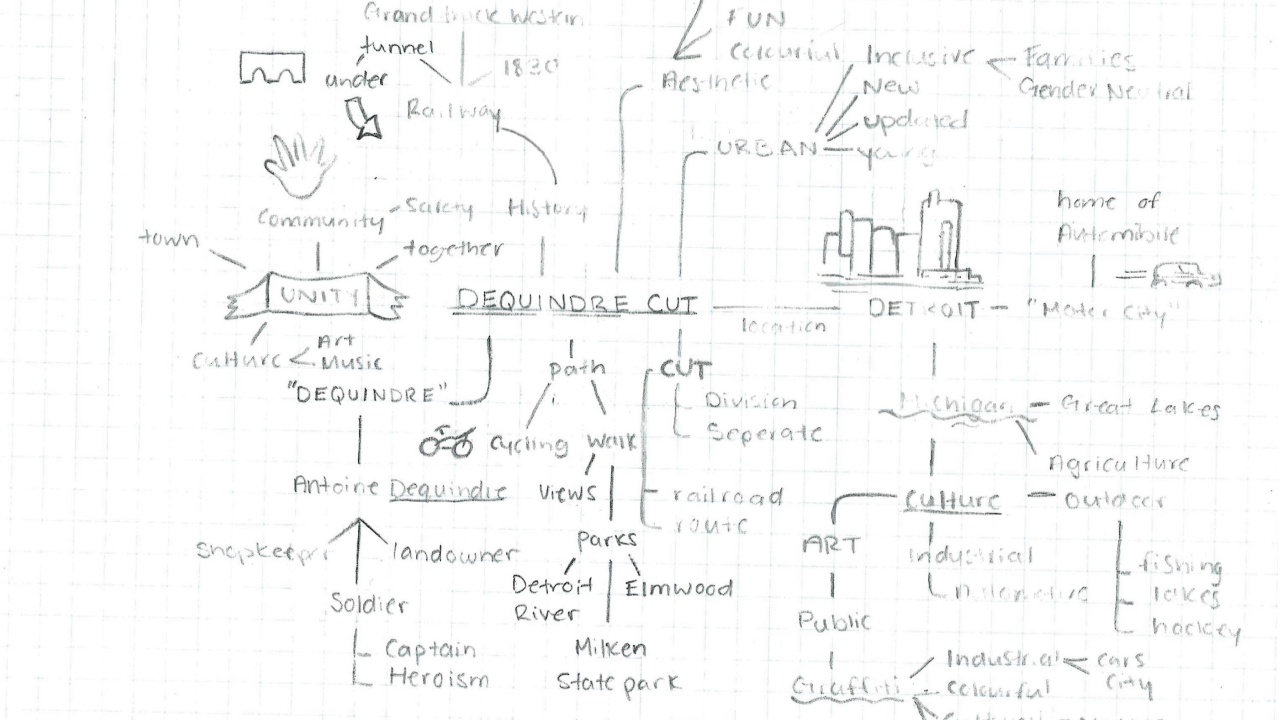 Grand truck Western
tunnel
under
1830
Railway
FUN
Colourful
Aesthetic
Inclusive
Families
Gender Neutral
New
updated
URBAN
Community
Safety
History
together
town
UNITY
Culture
Art
Music
DEQUINDRE CUT
location
DETROIT
"Motor City"
home of
Automobile
"DEQUINDRE"
path
CUT
Division
Seperate
cycling
walk
Michigan
Great Lakes
Agriculture
Antoine Dequindre
views
railroad
route
culture
outdoor
Shopkeeper
landowner
parks
ART
Industrial
fishing
Soldier
Detroit
River
Elmwood
lakes
hockey
Public
Captain
Heroism
Milken
State park
Industrial
cars
city
Graffiti
colourful